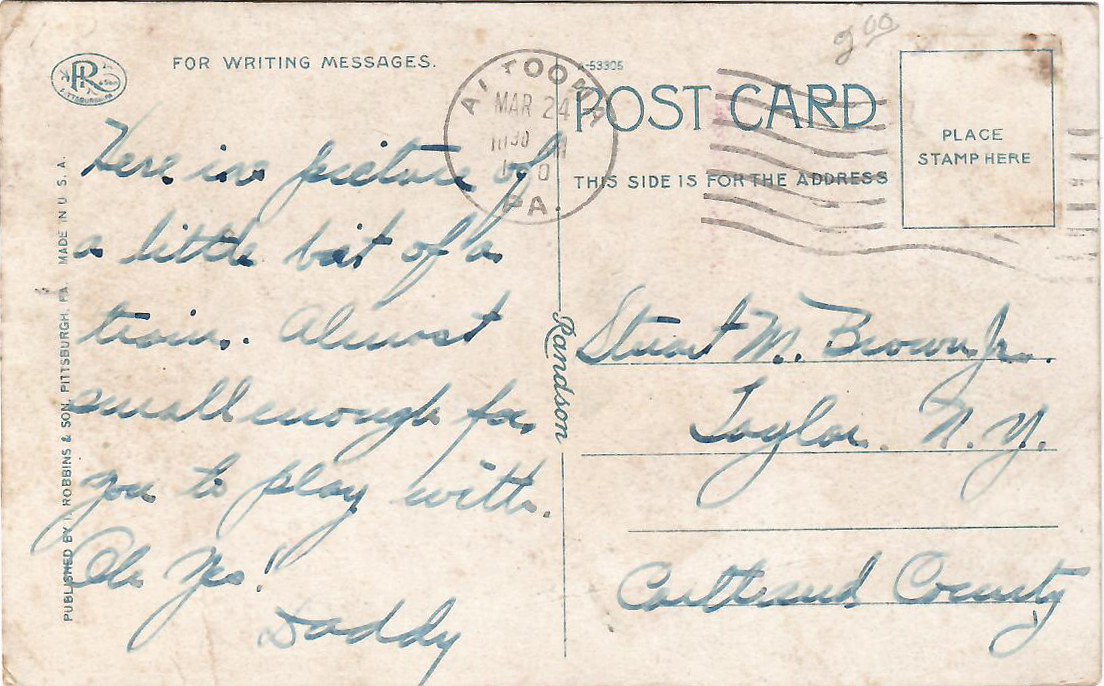 FOR WRITING MESSAGES.
R
& SON
PITTSBURGH, PA.
ALTOONA
MAR 24
10 30
PA.
2 00
A-53305
POST CARD
THIS SIDE IS FOR THE ADDRESS
PLACE
STAMP HERE
Here is a picture of
a little bit of a
train. Almost
small enough for
you to play with.
Oh Yes!
Daddy
Stuart M. Brown Jr.
Taylor. N. Y.
Cortland County
Randson
PUBLISHED BY I. ROBBINS & SON, PITTSBURGH, PA. MADE IN U. S. A.